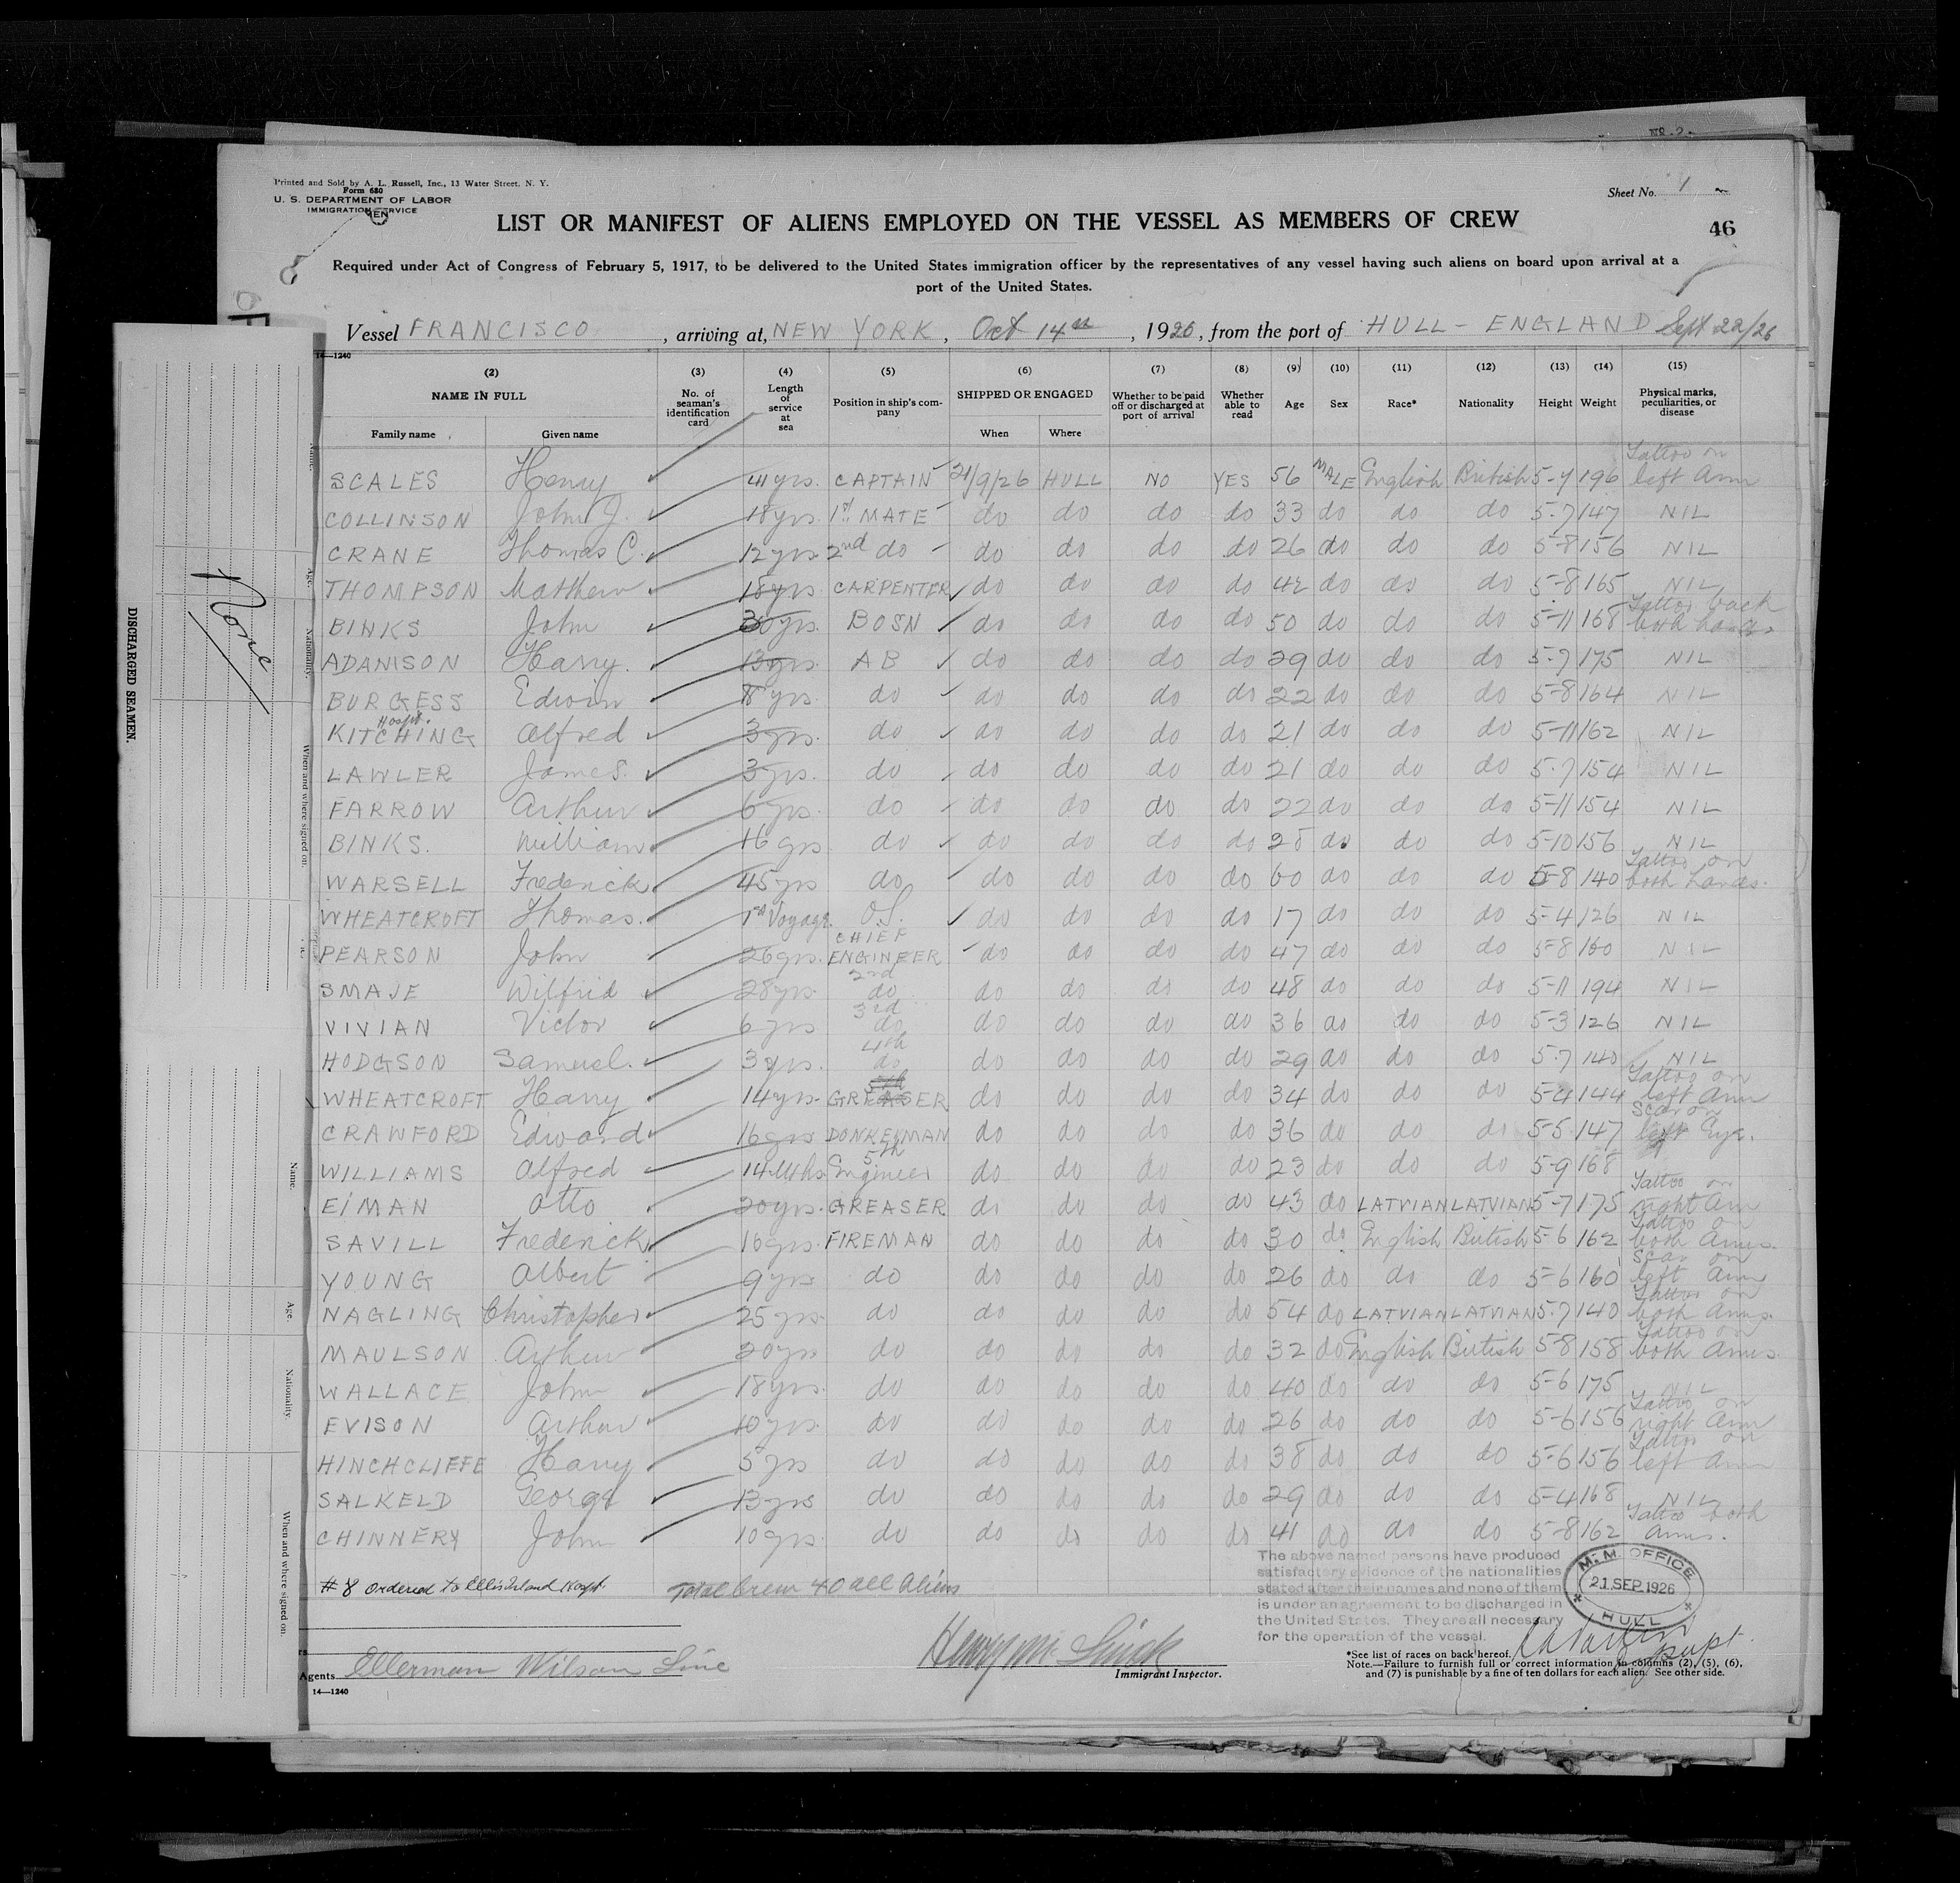 No. 2.
Printed and Sold by A. L. Russell, Inc., 13 Water Street, N. Y.
Form 680
U. S. DEPARTMENT OF LABOR
IMMIGRATION SERVICE
Sheet No. 1
LIST OR MANIFEST OF ALIENS EMPLOYED ON THE VESSEL AS MEMBERS OF CREW
46
Required under Act of Congress of February 5, 1917, to be delivered to the United States immigration officer by the representatives of any vessel having such aliens on board upon arrival at a
port of the United States.
Vessel FRANCISCO, arriving at, NEW YORK, Oct 14th, 1926, from the port of HULL - ENGLAND Sept 22/26
14—1240
(2) (3) (4) (5) (6) (7) (8) (9) (10) (11) (12) (13) (14) (15)
NAME IN FULL No. of seaman's identification card Length of service at sea Position in ship's company SHIPPED OR ENGAGED Whether to be paid off or discharged at port of arrival Whether able to read Age Sex Race* Nationality Height Weight Physical marks, peculiarities, or disease
Family name Given name When Where
SCALES Henry 41 yrs. CAPTAIN 21/9/26 HULL NO YES 56 MALE English British 5-7 196 Tattoo on left Arm
COLLINSON John J. 18 yrs. 1st MATE do do do do 33 do do do 5-7 147 NIL
CRANE Thomas C. 12 yrs 2nd do do do do do 26 do do do 5-8 156 NIL
THOMPSON Matthew 18 yrs CARPENTER do do do do 42 do do do 5-8 165 NIL
BINKS John 30 yrs. BOSN do do do do 50 do do do 5-11 168 Tattoo back both hands
ADANISON Harry. 13 yrs. AB do do do do 29 do do do 5-7 175 NIL
BURGESS Edwin 8 yrs. do do do do do 22 do do do 5-8 164 NIL
Hospt.
KITCHING Alfred 3 yrs. do do do do do 21 do do do 5-11 162 NIL
LAWLER James. 3 yrs. do do do do do 21 do do do 5-7 154 NIL
FARROW Arthur 6 yrs. do do do do do 22 do do do 5-11 154 NIL
BINKS. William 16 yrs do do do do do 28 do do do 5-10 156 NIL
WARSELL Frederick 45 yrs do do do do do 60 do do do 5-8 140 Tattoo on both hands.
WHEATCROFT Thomas. 1st Voyage. O.S. do do do do 17 do do do 5-4 126 NIL
PEARSON John 26 yrs. CHIEF ENGINEER do do do do 47 do do do 5-8 160 NIL
SMAJE Wilfrid 28 yrs. 2nd do do do do do 48 do do do 5-11 194 NIL
VIVIAN Victor 6 yrs 3rd do do do do do 36 do do do 5-3 126 NIL
HODGSON Samuel. 3 yrs. 4th do do do do do 29 do do do 5-7 140 NIL
WHEATCROFT Harry 14 yrs. GREASER do do do do 34 do do do 5-4 144 Tattoo on left Arm
CRAWFORD Edward 16 yrs DONKEYMAN do do do do 36 do do do 5-5 147 Scar on left Eye.
WILLIAMS Alfred 14 Mths 5th Engineer do do do do 23 do do do 5-9 168
EIMAN Otto 20 yrs. GREASER do do do do 43 do LATVIAN LATVIAN 5-7 175 Tattoo on right Arm
SAVILL Frederick 16 yrs. FIREMAN do do do do 30 do English British 5-6 162 Tattoo on both Arms.
YOUNG Albert 9 yrs do do do do do 26 do do do 5-6 160 Scar on left Arm
NAGLING Christopher 25 yrs. do do do do do 54 do LATVIAN LATVIAN 5-7 140 Tattoo on both Arms.
MAULSON Arthur 20 yrs do do do do do 32 do English British 5-8 158 Tattoo on both Arms.
WALLACE John 18 yrs. do do do do do 40 do do do 5-6 175 NIL
EVISON Arthur 10 yrs. do do do do do 26 do do do 5-6 156 Tattoo on right Arm
HINCHCLIFFE Harry 5 yrs do do do do do 38 do do do 5-6 156 Tattoo on left Arm
SALKELD George 13 yrs do do do do do 29 do do do 5-4 168 NIL
CHINNERY John 10 yrs. do do do do do 41 do do do 5-8 162 Tattoo both Arms.
# 8 Ordered to Ellis Island Hospt. Total Crew 40 all Aliens
The above named persons have produced
satisfactory evidence of the nationalities
stated after their names and none of them
is under an agreement to be discharged in
the United States. They are all necessary
for the operation of the vessel.
M. M. OFFICE
21 SEP. 1926
HULL
Supt.
Agents Ellerman Wilson Line
Immigrant Inspector.
*See list of races on back hereof.
Note.—Failure to furnish full or correct information in columns (2), (5), (6),
and (7) is punishable by a fine of ten dollars for each alien. See other side.
14—1240
DISCHARGED SEAMEN.
None
Name.
Age.
Nationality.
When and where signed on.
Name.
Age.
Nationality.
When and where signed on.